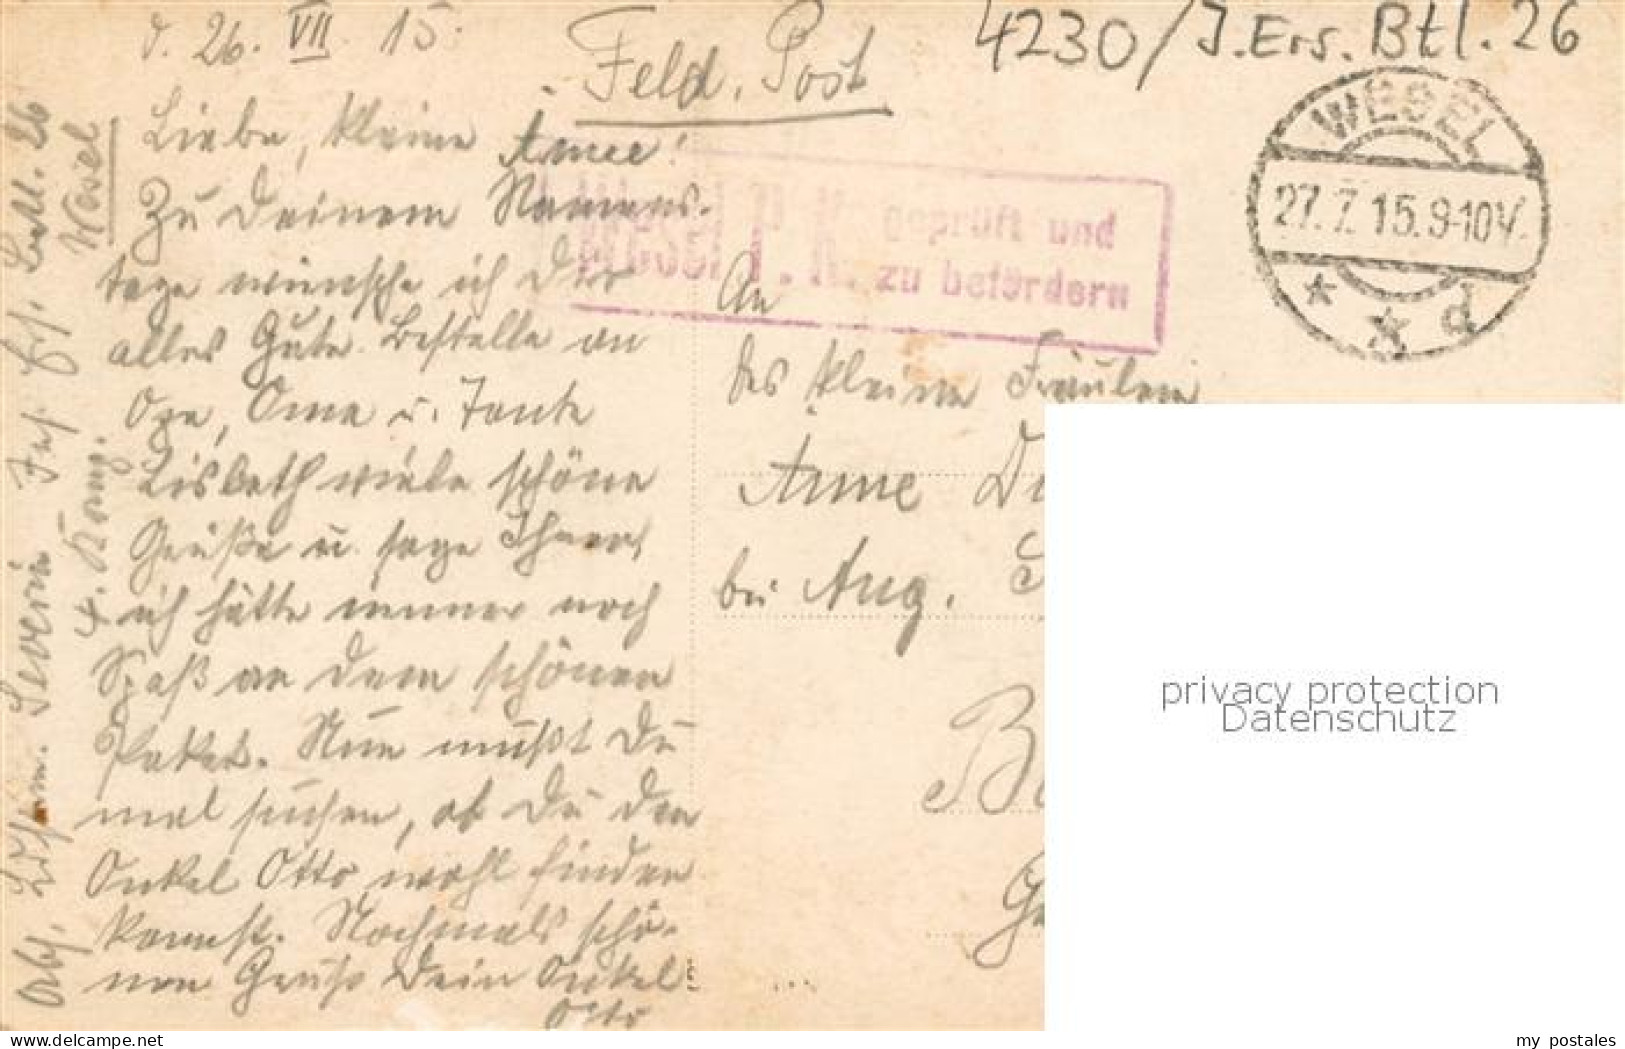 d. 26. VII 15.
Feld. Post
4230/J.Ers. Btl. 26
Liebe, kleine Anne!
Zu Deinem Namens-
tage wünsche ich Dir
alles Gute. Bestelle an
Opa, Oma u. Tante
Lisbeth viele schöne
Grüße u. sage Ihnen,
ich hätte immer noch
Spaß an dem schönen
Paket. Nun mußt Du
mal suchen, ob Du den
Onkel Otto wohl finden
kannst. Nochmals schö-
nen Gruß Dein Onkel
Otto
Abs. Severin Inf. Ers. Batl. 26
4. Komp. Wesel
P. K. geprüft und
zu befördern
WESEL
27.7.15.9-10V.
* * d
An
das kleine Fräulein
Anne
bei Aug.
privacy protection
Datenschutz
www.delcampe.net
my_postales